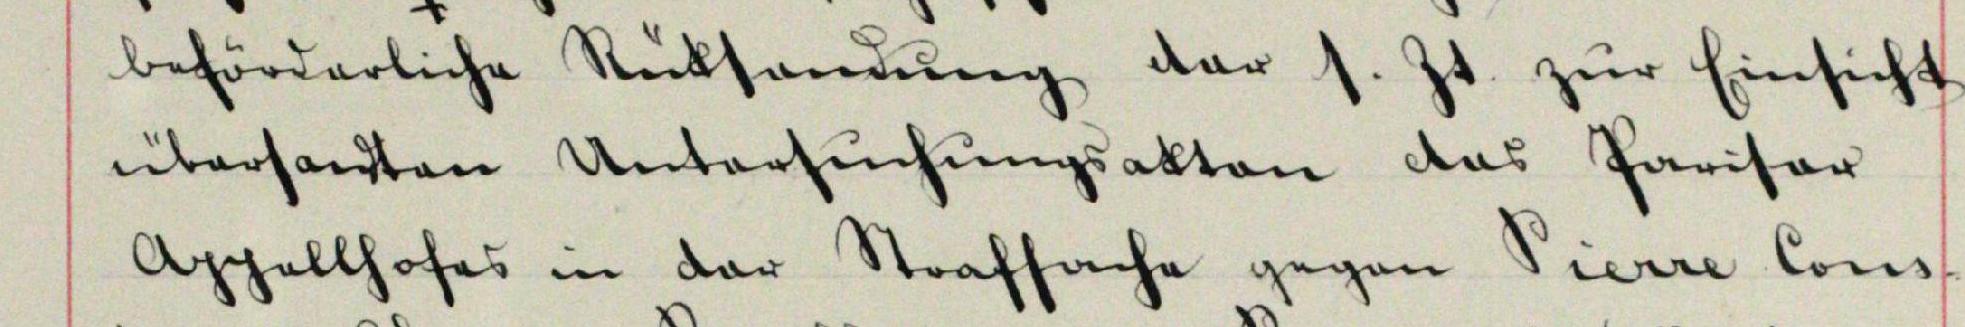 beförderliche Rüksendung der s. Zt. zur Einsicht
übersandten Untersuchungsakten des Pariser
Appellhofes in der Strafsache gegen Pierre Cons-